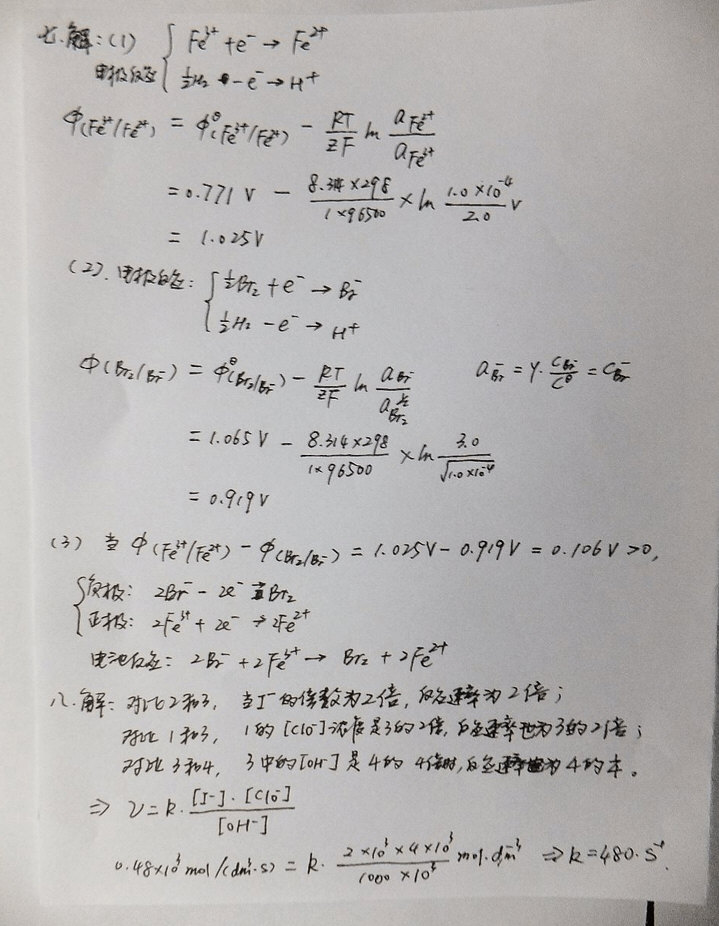 七. 解: (1) { Fe³⁺ + e⁻ → Fe²⁺
电极反应 { ½H₂ - e⁻ → H⁺
φ(Fe³⁺/Fe²⁺) = φ^θ(Fe³⁺/Fe²⁺) - RT/zF ln a_Fe²⁺/a_Fe³⁺
= 0.771 V - (8.314×298)/(1×96500) × ln (1.0×10⁻⁴)/2.0 V
= 1.025V
(2). 电极反应: { ½Br₂ + e⁻ → Br⁻
{ ½H₂ - e⁻ → H⁺
φ(Br₂/Br⁻) = φ^θ(Br₂/Br⁻) - RT/zF ln a_Br⁻/a_Br₂^½ a_Br⁻ = γ·C_Br⁻/C^θ = C_Br⁻
= 1.065 V - (8.314×298)/(1×96500) × ln 3.0/√(1.0×10⁻⁴)
= 0.919 V
(3) 当 φ(Fe³⁺/Fe²⁺) - φ(Br₂/Br⁻) = 1.025V - 0.919V = 0.106V >0,
{ 负极: 2Br⁻ - 2e⁻ Br₂
{ 正极: 2Fe³⁺ + 2e⁻ → 2Fe²⁺
电池反应: 2Br⁻ + 2Fe³⁺ → Br₂ + 2Fe²⁺
八. 解: 对比2和3, 当I⁻的倍数为2倍, 反应速率为2倍;
对比1和3, 1的[ClO⁻]浓度是3的2倍, 反应速率也为3的2倍;
对比3和4, 3中的[OH⁻]是4的4倍时, 反应速率为4的本。
⇒ V = k·[I⁻]·[ClO⁻]/[OH⁻]
0.48×10³ mol/(dm³·s) = k· (2×10³×4×10³)/(1000×10³) mol·dm⁻³ ⇒ k=480·s⁻¹.